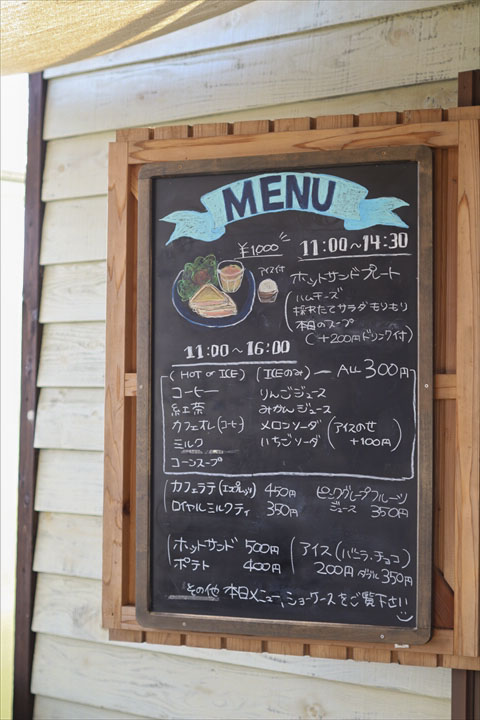 MENU
¥1000
11:00~14:30
アイス付
ホットサンドプレート
ハムチーズ
採れたてサラダもりもり
本日のスープ
(+200円ドリンク付)
11:00~16:00
(HOT or ICE) (ICEのみ) ALL 300円
コーヒー りんごジュース
紅茶 みかんジュース
カフェオレ(コーヒー) メロンソーダ (アイスのせ
ミルク いちごソーダ +100円)
コーンスープ
カフェラテ(エスプレッソ) 450円 ピンクグレープフルーツ
ロイヤルミルクティ 350円 ジュース 350円
ホットサンド 500円 アイス(バニラ、チョコ)
ポテト 400円 200円 ダブル350円
その他 本日メニュー、ショーケースをご覧下さい